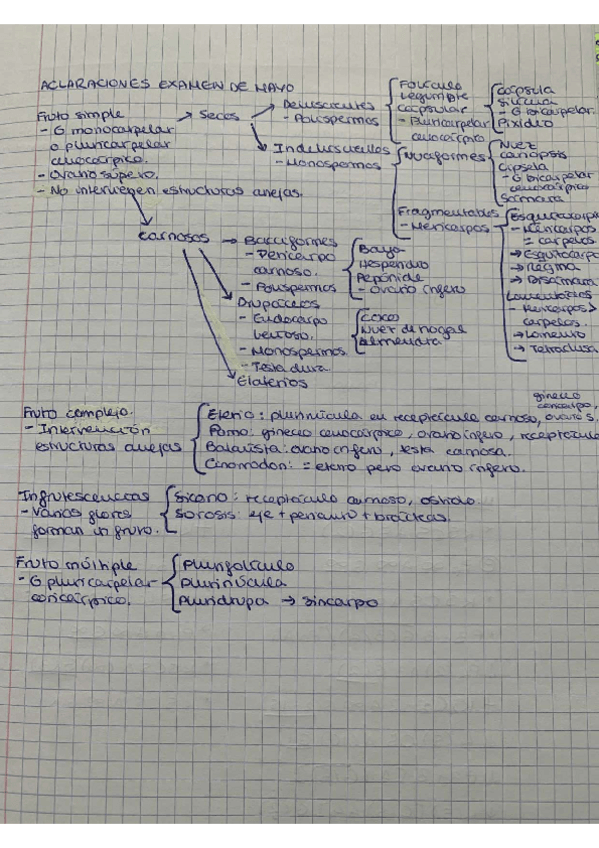 ACLARACIONES EXAMEN DE MAYO
Fruto simple
- G monocarpelar
o pluricarpelar
cenocárpico.
- Ovario súpero.
- No intervienen estructuras anejas.
→ Secos
→ Dehiscentes
- Polispermos
Folículo
Legumbre
Capsular
- Pluricarpelar
cenocárpico
Cápsula
Silicua
- G bicarpelar
Pixidio
Indehiscentes
- Monospermos
Nuciformes
Nuez
Cariopsis
Cipsela
- G bicarpelar
cenocárpico
Sámara
Fragmentables
- Mericarpos
- Mericarpos
= carpelos
→ Esquizocarpo
→ Regma
→ Disámara
- Mericarpos >
carpelos.
→ Lomento
→ Tetraclusa
Carnosos
→ Baciformes
- Pericarpo
carnoso.
- Polispermos
Baya
Hesperidio
Pepónide
- Ovario ínfero
Drupáceos
- Endocarpo
leñoso.
- Monospermos
- Testa dura.
Coco
Nuez de nogal
Almendra
Elaterios
Fruto complejo.
- Intervención
estructuras anejas
gineceo
Eterio: plurinúcula en receptáculo carnoso, ovario s.
Pomo: gineceo cenocárpico, ovario ínfero, receptáculo
Balaústa: ovario ínfero, testa carnosa.
Cinorrodon: = eterio pero ovario ínfero.
Infrutescencias
- Varias flores
forman un fruto.
Sicono: receptáculo carnoso, ostiolo.
Sorosis: eje + perianto + brácteas.
Fruto múltiple
- G pluricarpelar
coricárpico.
Plurifolículo
Plurinúcula
Pluridrupa → sincarpo